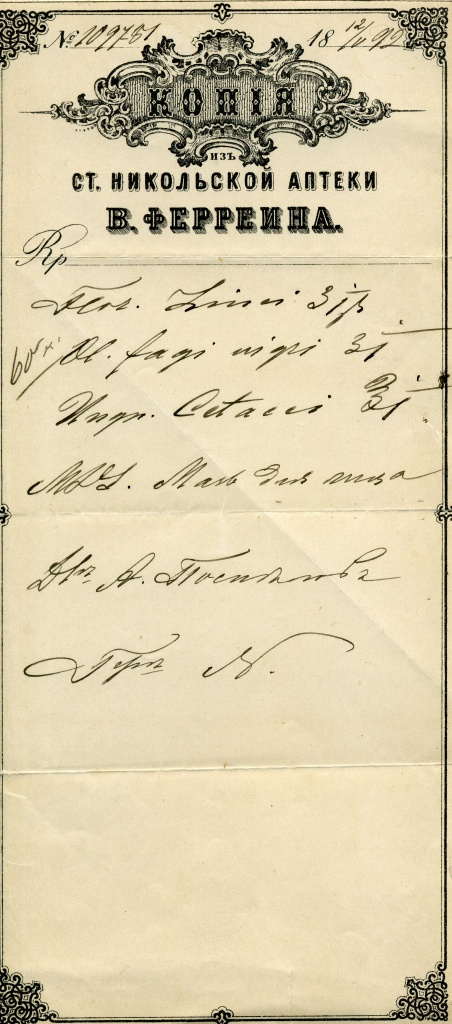 № 109781 18 12/V 92
КОПІЯ
ИЗЪ
СТ. НИКОЛЬСКОЙ АПТЕКИ
В. ФЕРРЕИНА.
Rp
Flor. Zinci ʒiβ
60 к. Ol. fagi nigri ʒi
Ungu. Cetacei ℥i
MDS. Мазь для лица
Д-ръ А. Поспелова